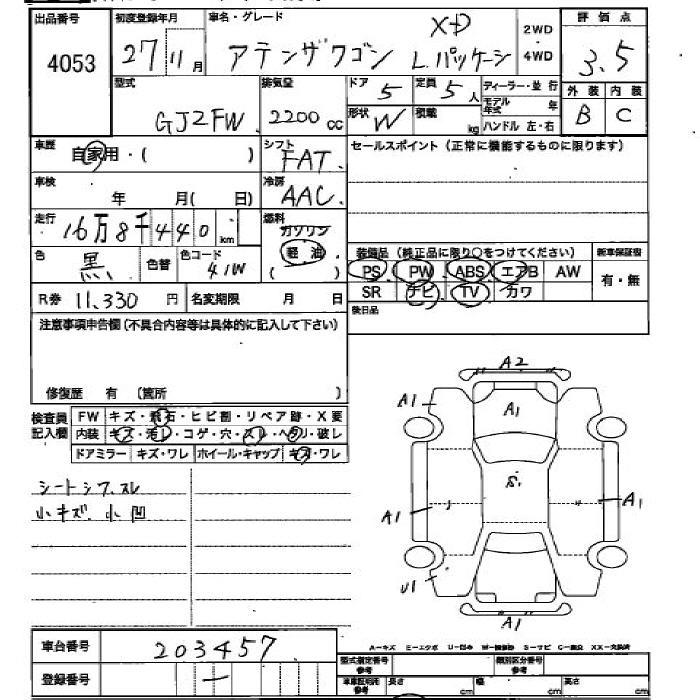 出品番号 初度登録年月 車名・グレード 評価点
4053 27 11月 アテンザワゴン XD Lパッケージ 2WD・4WD 3.5
型式 排気量 ドア 定員 ディーラー・並行 外装 内装
GJ2FW 2200cc 5 5人 モデル年式 年 B C
形状 W 積載 kg ハンドル 左・右
車歴 自家用・( ) シフト FAT セールスポイント(正常に機能するものに限ります)
車検 年 月( 日) 冷房 AAC
走行 16万8千440km 燃料 ガソリン 軽油
色 黒 色替 色コード 41W
装備品(純正品に限り○をつけてください) 新車保証書
PS PW ABS エアB AW 有・無
SR ナビ TV カワ
R券 11,330円 名変期限 月 日 後日品
注意事項申告欄(不具合内容等は具体的に記入して下さい)
修復歴 有 〔箇所 〕
検査員記入欄 FW キズ・飛石・ヒビ割・リペア跡・X要
内装 キズ・汚レ・コゲ・穴・スレ・ヘタリ・破レ
ドアミラー キズ・ワレ ホイール・キャップ キズ・ワレ
シートシワ.スレ
小キズ.小凹
A2
A1
A1
S1
A1
A1
U1
A1
A-キズ E-エクボ U-凹み W-補修跡 S-サビ C-腐食 XX-交換済
車台番号 203457
登録番号 ー
型式指定番号 参考 類別区分番号 参考
車庫証明用 参考 長さ cm 幅 cm 高さ cm